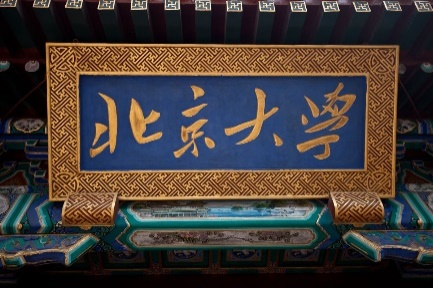 北京大學